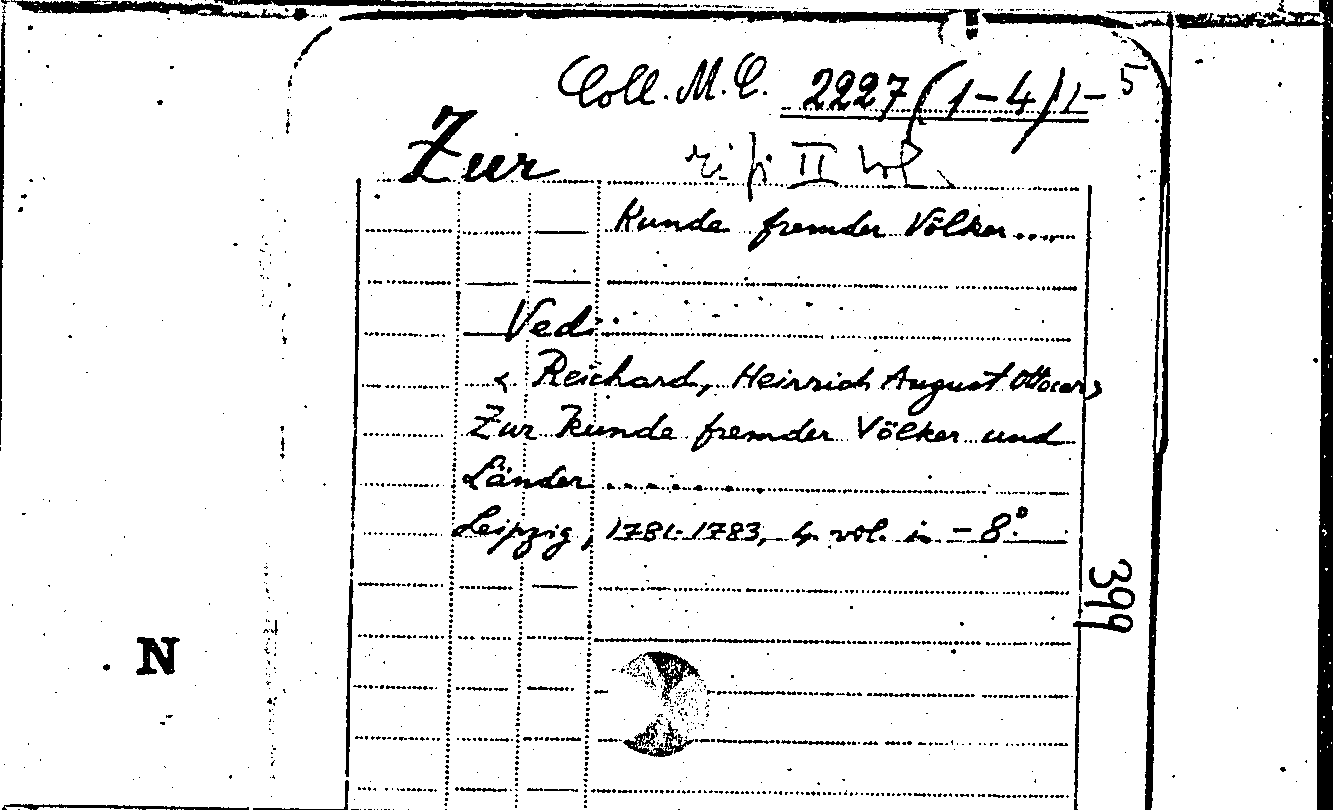 Coll. M. C. 2227 (1-4) 1-5
Zur
II vol.
Kunde fremder Völker....
Vedi:
< Reichard, Heinrich August Ottocar >
Zur Kunde fremder Völker und
Länder ........
Leipzig, 1781-1783, 4 vol. in - 8°.
399
N